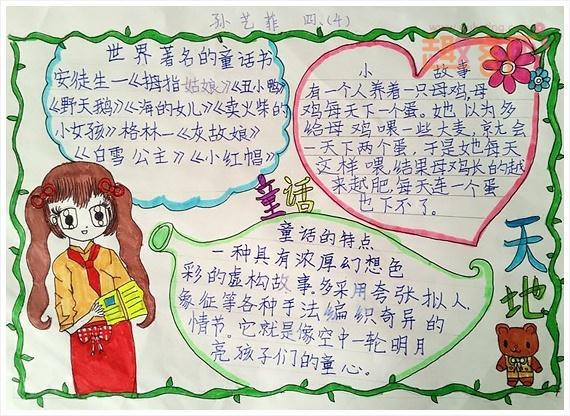 孙艺菲 四.(4)
世界著名的童话书
安徒生一《拇指姑娘》《丑小鸭》
《野天鹅》《海的女儿》《卖火柴的
小女孩》格林一《灰故娘》
《白雪公主》《小红帽》
小 故事
有一个人养着一只母鸡,母
鸡每天下一个蛋。她以为多
给母鸡喂一些大麦,就会
一天下两个蛋,于是她每天
这样喂,结果母鸡长的越
来越肥,每天连一个蛋
也下不了。
童话
天地
童话的特点
一种具有浓厚幻想色
彩的虚构故事,多采用夸张、拟人、
象征等各种手法编织奇异的
情节。它就是像空中一轮明月
亮孩子们的童心。